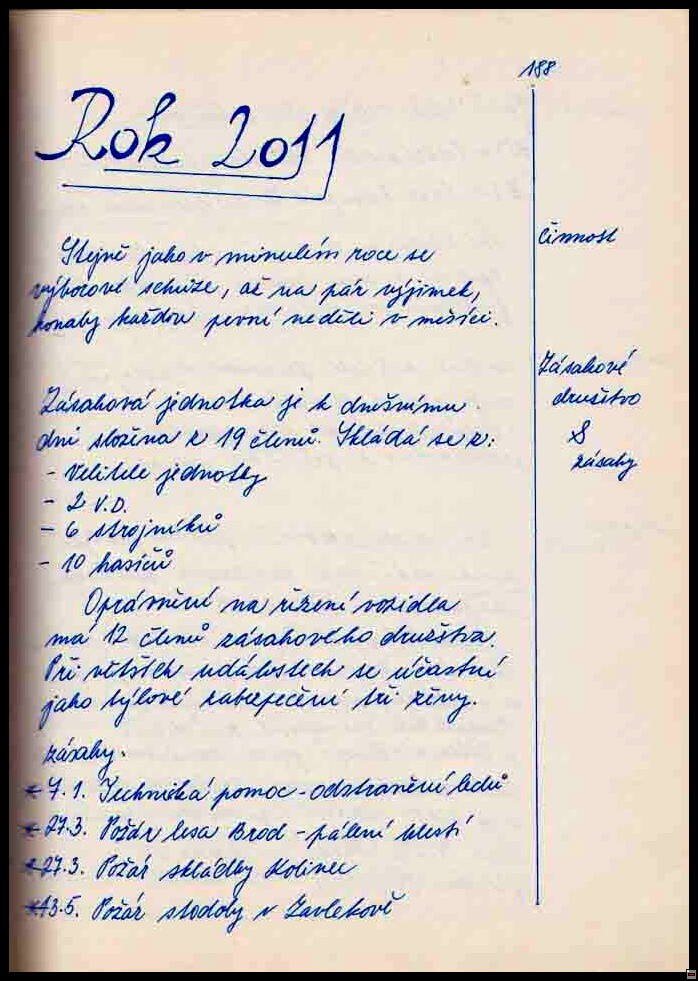 188
Rok 2011
činnost
Stejně jako v minulém roce se
výborové schůze, až na pár výjimek,
konaly každou první neděli v měsíci.
Zásahové
družstvo
&
zásahy
Zásahová jednotka je k dnešnímu
dni složena z 19 členů. Skládá se z:
- Velitele jednotky
- 2 V.D.
- 6 strojníků
- 10 hasičů
Oprávnění na řízení vozidla
má 12 členů zásahového družstva.
Při větších událostech se účastní
jako týlové zabezpečení tři ženy.
zásahy.
* 7.1. Technická pomoc - odstranění ledů
* 27.3. Požár lesa Brod - pálení klestí
* 27.3. Požár skládky Kolinec
* 13.5. Požár stodoly v Zavlekově